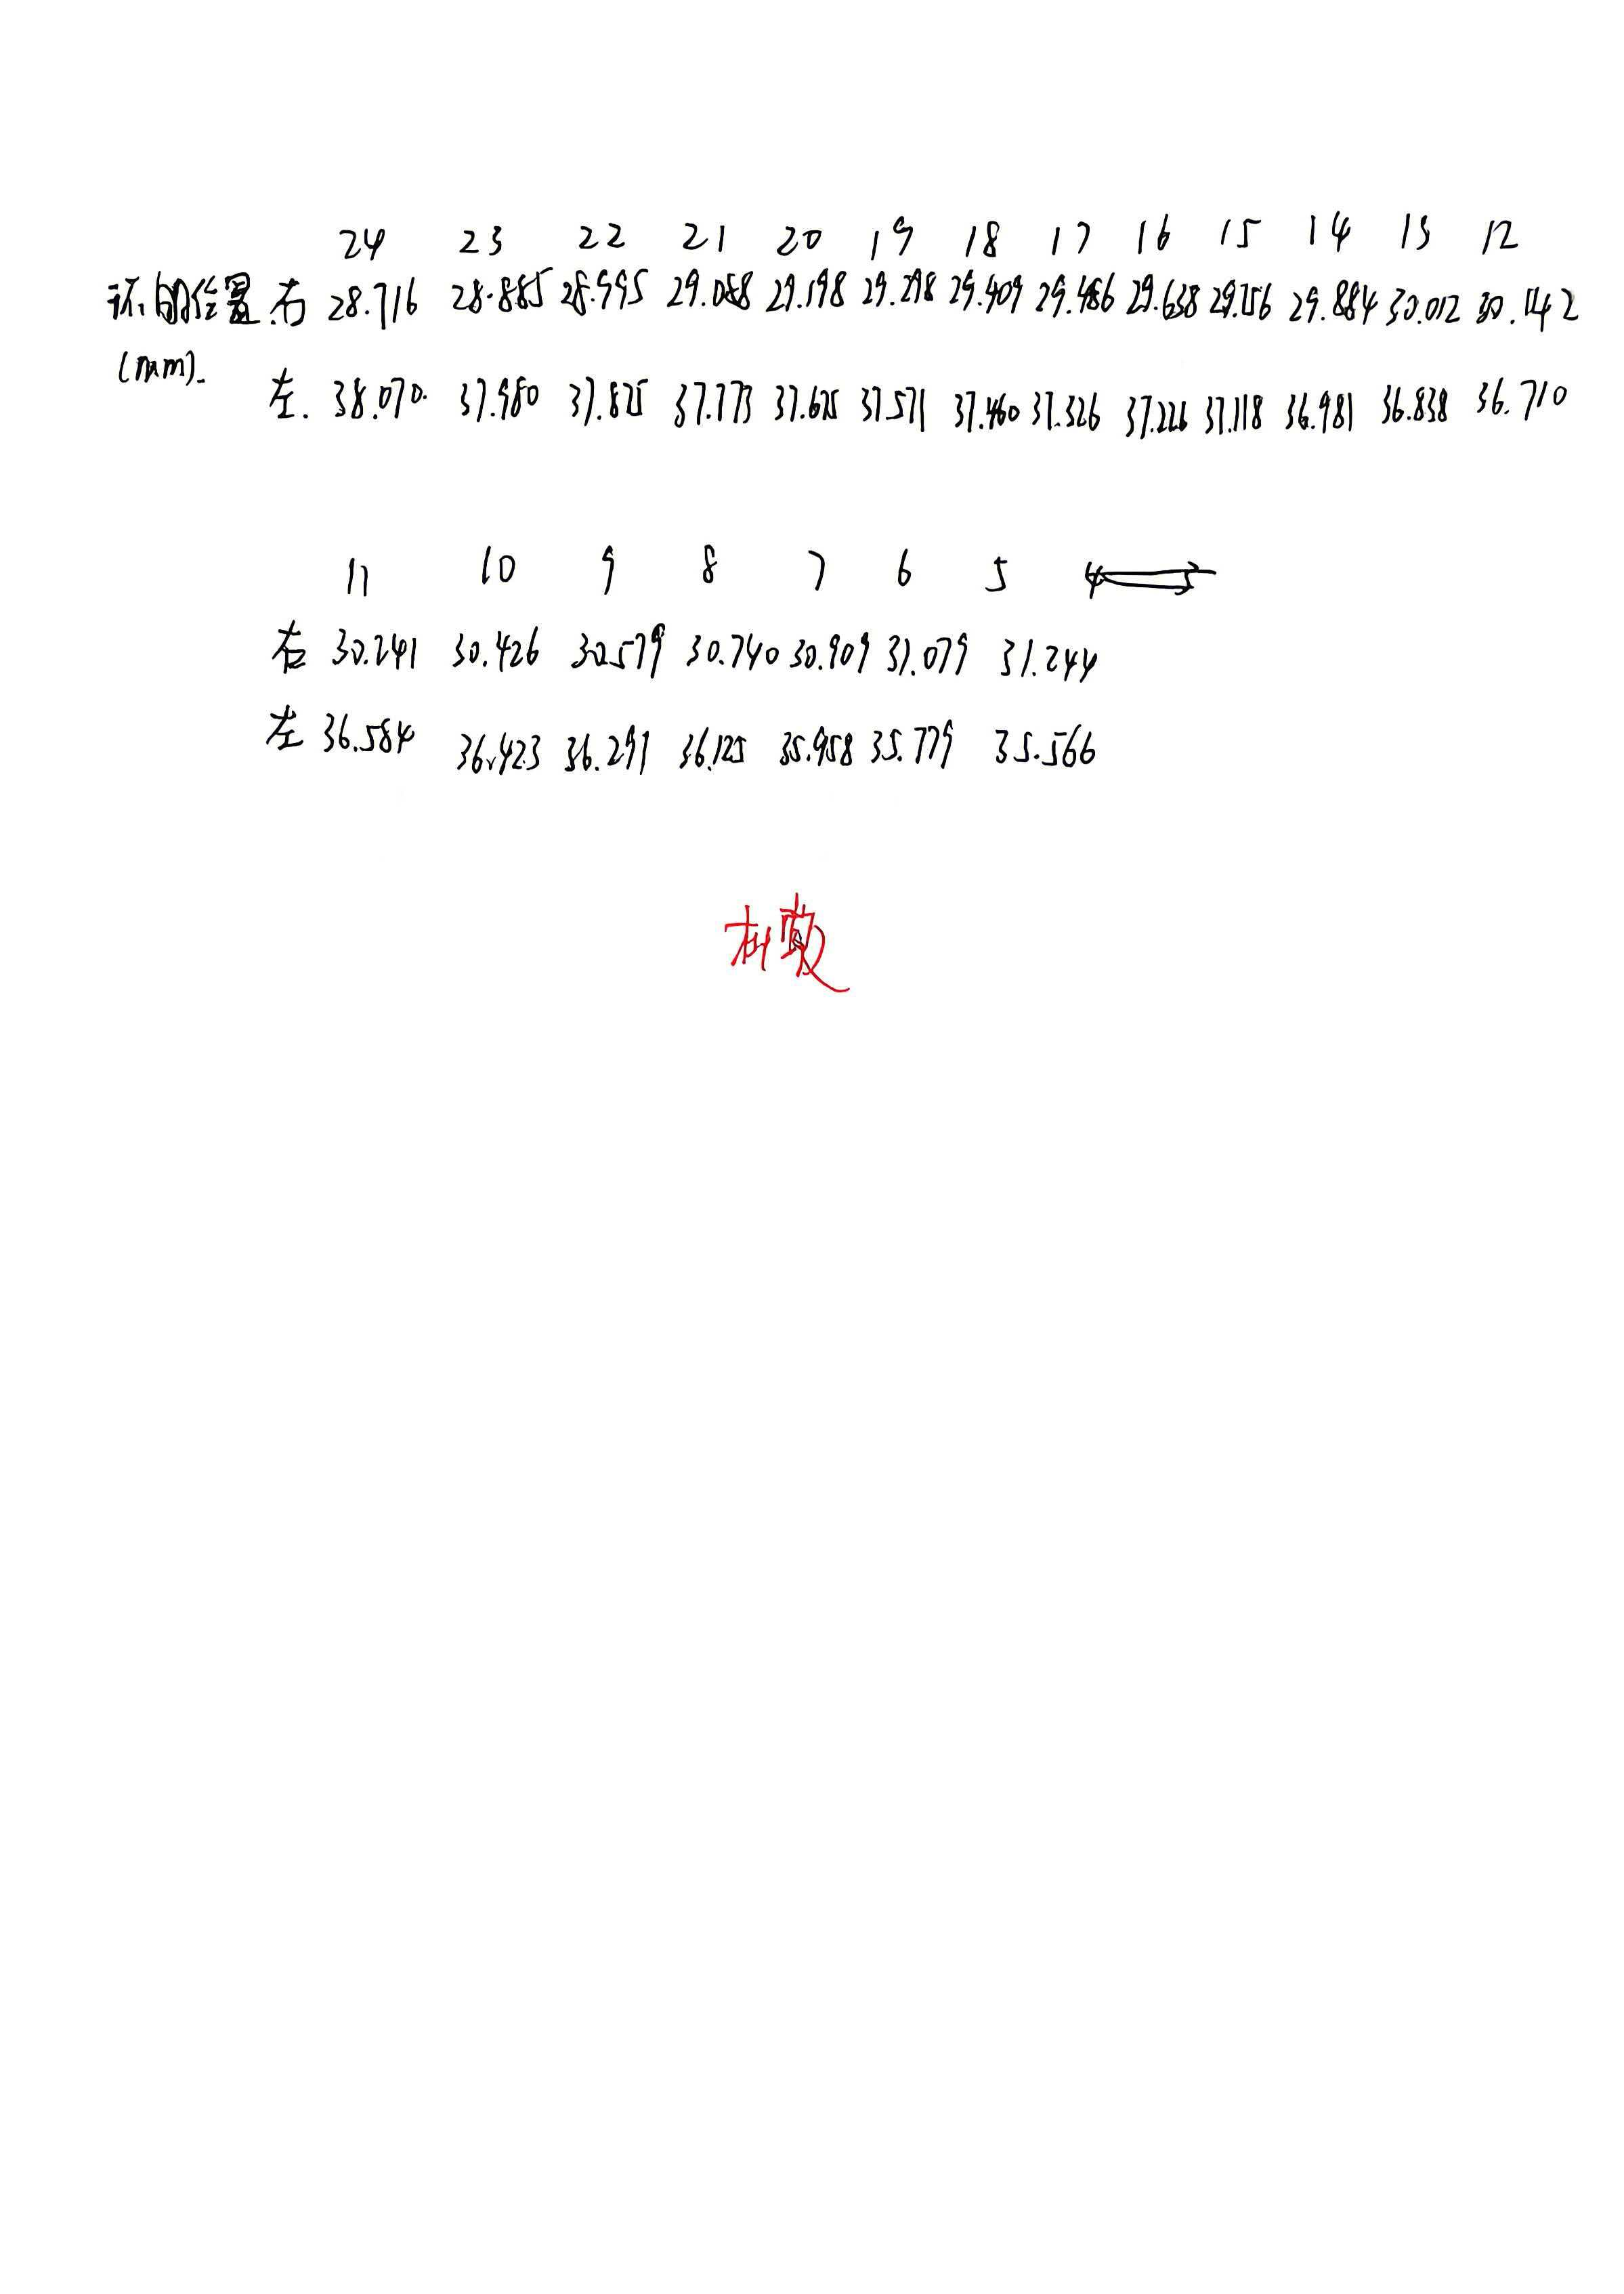 24 23 22 21 20 19 18 17 16 15 14 13 12
环的位置 右 28.716 28.885 28.995 29.088 29.198 29.298 29.409 29.486 29.638 29.756 29.884 30.012 30.142
(mm).
左. 38.070. 37.980 37.825 37.773 37.675 37.571 37.460 37.326 37.226 37.118 36.981 36.838 36.710
11 10 9 8 7 6 5
右 30.241 30.426 30.579 30.740 30.909 31.079 31.244
左 36.584 36.423 36.291 36.125 35.958 35.779 35.566